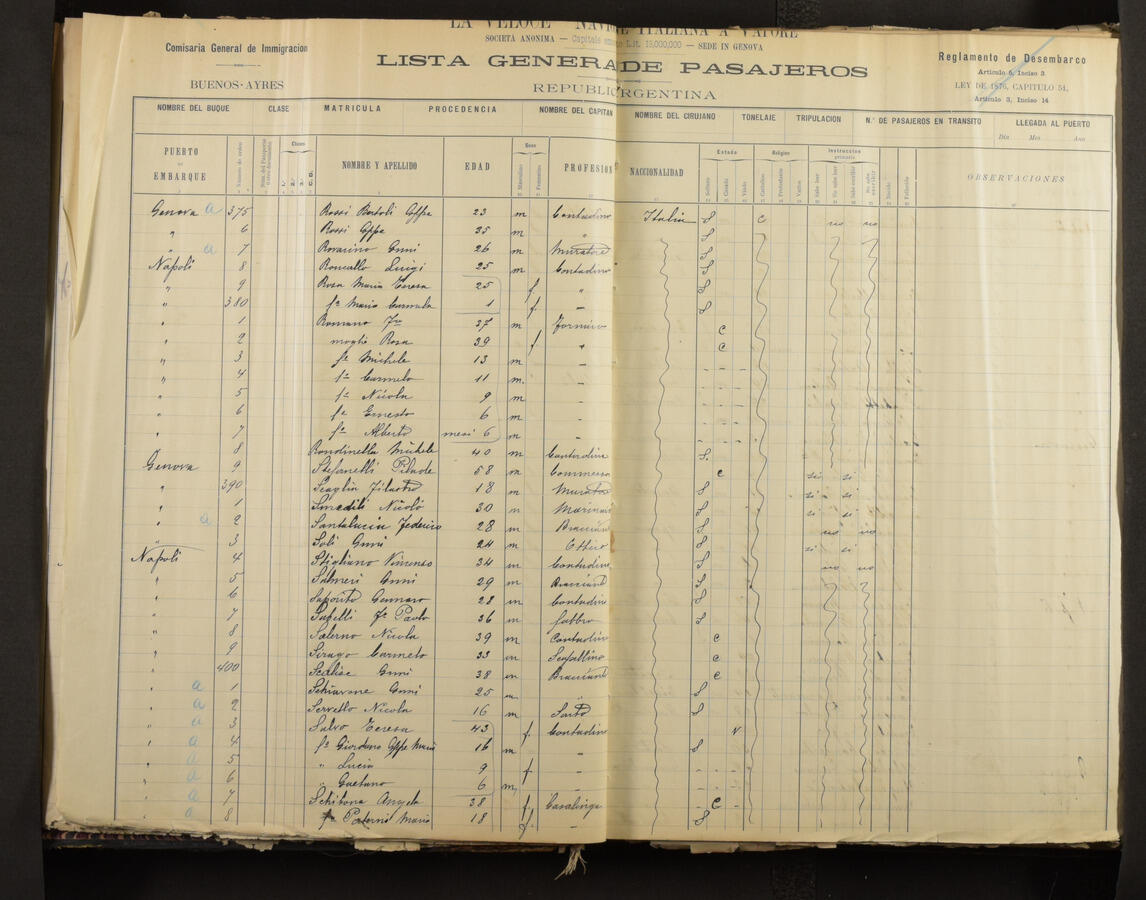 LA VELOCE NAVIG ITALIANA A VAPORE
SOCIETÀ ANONIMA — Capitale Lit. 15,000,000 — SEDE IN GENOVA
Comisaria General de Immigracion
BUENOS-AYRES
LISTA GENERA DE PASAJEROS
REPUBLIC RGENTINA
Reglamento de Desembarco
Artículo 5, Inciso 3
LEY DE 1876, CAPITULO 54,
Artículo 3, Inciso 14
NOMBRE DEL BUQUE CLASE MATRICULA PROCEDENCIA NOMBRE DEL CAPITAN NOMBRE DEL CIRUJANO TONELAJE TRIPULACION N.º DE PASAJEROS EN TRANSITO LLEGADA AL PUERTO
Dia Mes Ano
PUERTO EMBARQUE Clases NOMBRE Y APELLIDO EDAD Sexo PROFESION NACCIONALIDAD Estado Religion Instruccion primaria OBSERVACIONES
Genova a 375 Rossi Bortoli Gffe 23 m Contadino Italia S C no no
" 6 Rossi Gffe 35 m " S
" a 7 Rosarino Gnni 26 m Muratore S
Napoli 8 Roncallo Luigi 25 m Contadino S
" 9 Rosa Maria Teresa 25 f " S
" 380 fa Maria Carmela 1 f — S
" 1 Romano Fco 37 m Fornaio C
" 2 moglie Rosa 39 f " C
" 3 fo Michele 13 m —
" 4 fo Carmelo 11 m —
" 5 fo Nicola 9 m —
" 6 fo Ernesto 6 m —
" 7 fo Alberto mesi 6 m —
8 Rondinella Michele 40 m Contadino S
Genova 9 Stefanelli Pilade 58 m C si si
" 390 Scaglia 18 m Murator S si si
" 1 Nicoló 30 m S si si
" a 2 Santalucia Federico 28 m Bracciante S no no
" 3 Soli Gnni 24 m S si si
Napoli 4 Stigliano Vincenzo 34 m Contadino S no no
" 5 Salmeri Gnni 29 m Bracciante S
" 6 Saporito Gennaro 28 m Contadin
" 7 Paolo 36 m Fabbro S
" 8 Salerno Nicola 39 m Contadino C
" 9 Sirago Carmelo 33 m Scalpellino C
" 400 Scalise Gnni 38 m Bracciante C
" a 1 Schiavone Gnni 25 m " S
" a 2 Servello Nicola 16 m Sarto S
" a 3 Salvo Teresa 43 f Contadina V
" a 4 fo Giordano Gffe Maria 16 m — S
" a 5 " Lucia 9 f —
" a 6 " Gaetano 6 m —
" a 7 Schibona Angela 38 f Casalinga C
" a 8 fa Paterni Maria 18 f — S